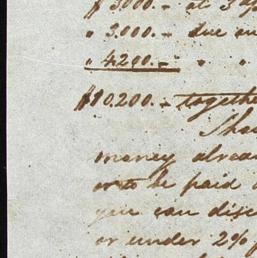 $ 3000.- at 3 
" 3.000.- due
" 4200.- " "
$10.200.- together
Shou
money alrea
or to be paid
you can disc
or under 2%